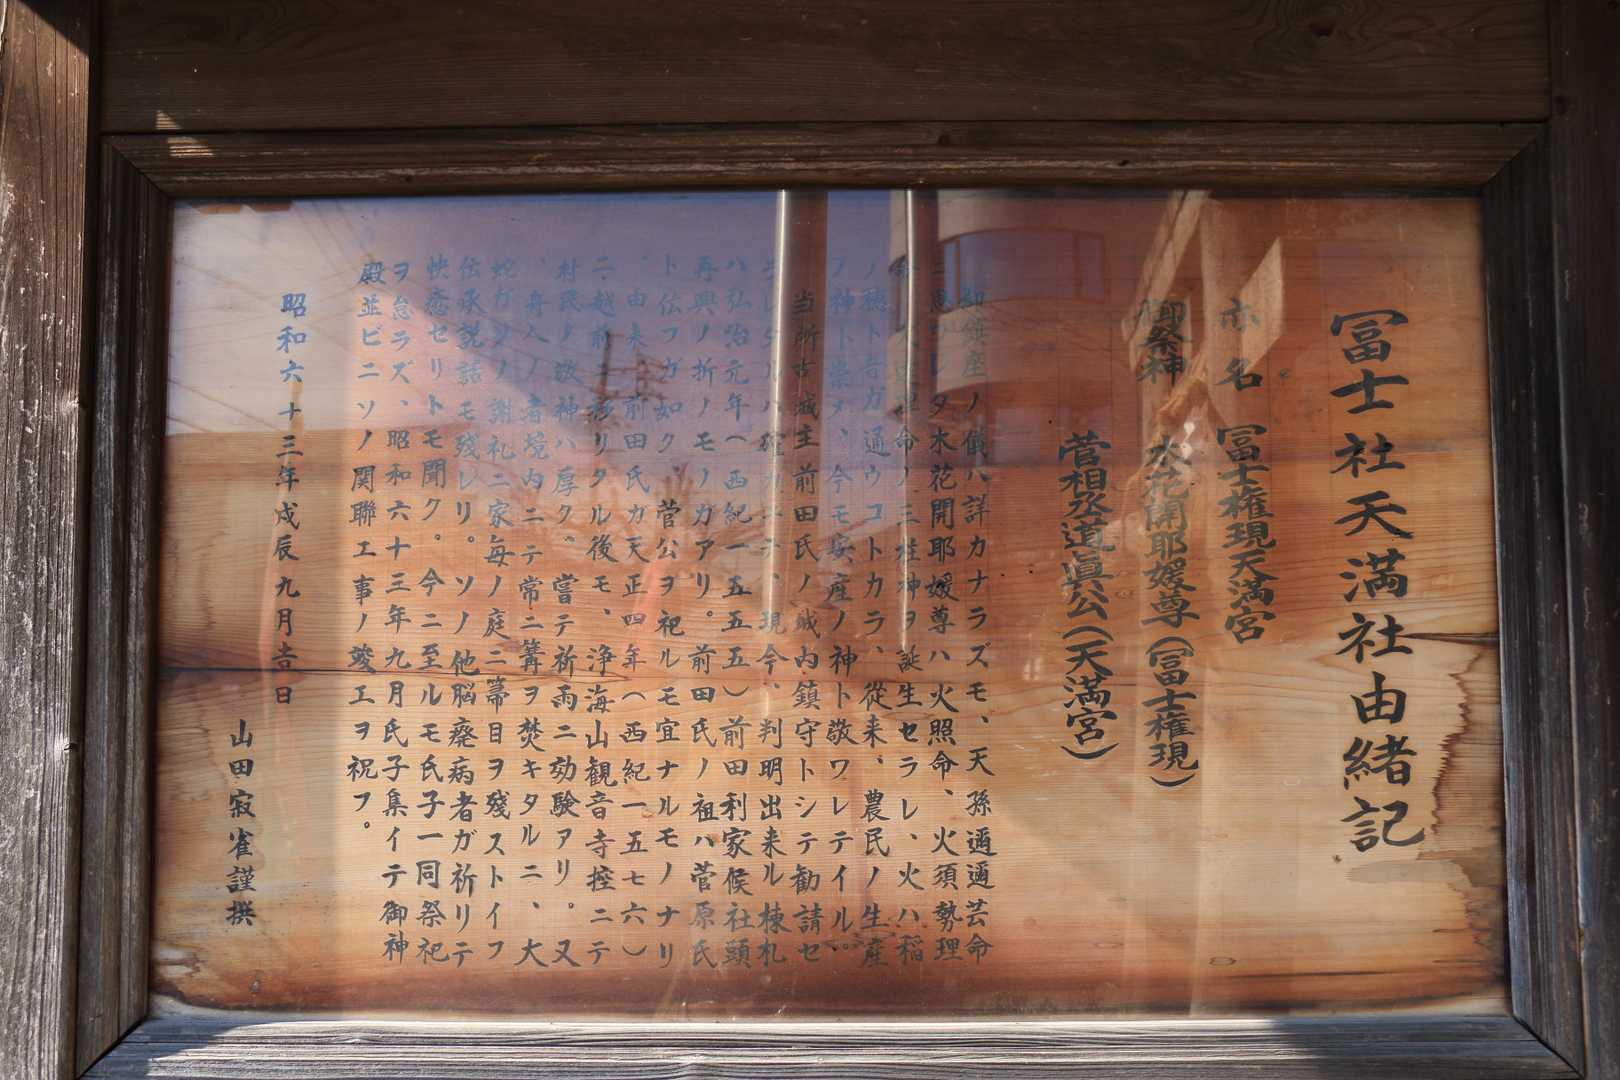 冨士社天満社由緒記
亦名 冨士権現天満宮
御祭神 木花開耶媛尊(冨士権現)
菅相丞道眞公(天満宮)
御鎮座ノ儀ハ詳カナラズモ、天孫邇邇芸命
ニ思ワレタ木花開耶媛尊ハ火照命、火須勢理
命、火遠理命ノ三柱神ヲ誕生セラレ、火ハ稲
ノ穂ト音ガ通ウコトカラ、從来、農民ノ生産
ノ神ト崇メ、今モ安産ノ神ト敬ワレテイル。
当所古城主前田氏ノ城内鎮守トシテ勧請セ
ラレタルハ確カニテ、現今、判明出来ル棟札
ハ弘治元年(西紀一五五五)前田利家候社頭
再興ノ折ノモノガアリ。前田氏ノ祖ハ菅原氏
ト伝フガ如ク 菅公ヲ祀ルモ宜ナルモノナリ
。由来、前田氏ガ天正四年(西紀一五七六)
ニ越前ニ移リタル後モ、浄海山観音寺控ニテ
村民ノ敬神ハ厚ク、嘗テ祈雨ニ効驗アリ。又
、舟人ノ者境内ニテ常ニ篝ヲ焚キタルニ、大
蛇ガソノ謝礼ニ家毎ノ庭ニ箒目ヲ殘ストイフ
伝承説話モ残レリ。ソノ他脳癈病者ガ祈リテ
快癒セリトモ聞ク。今ニ至ルモ氏子一同祭祀
ヲ怠ラズ、昭和六十三年九月氏子集イテ御神
殿並ビニソノ関聯工事ノ竣工ヲ祝フ。
昭和六十三年戊辰九月吉日
山田寂雀謹撰